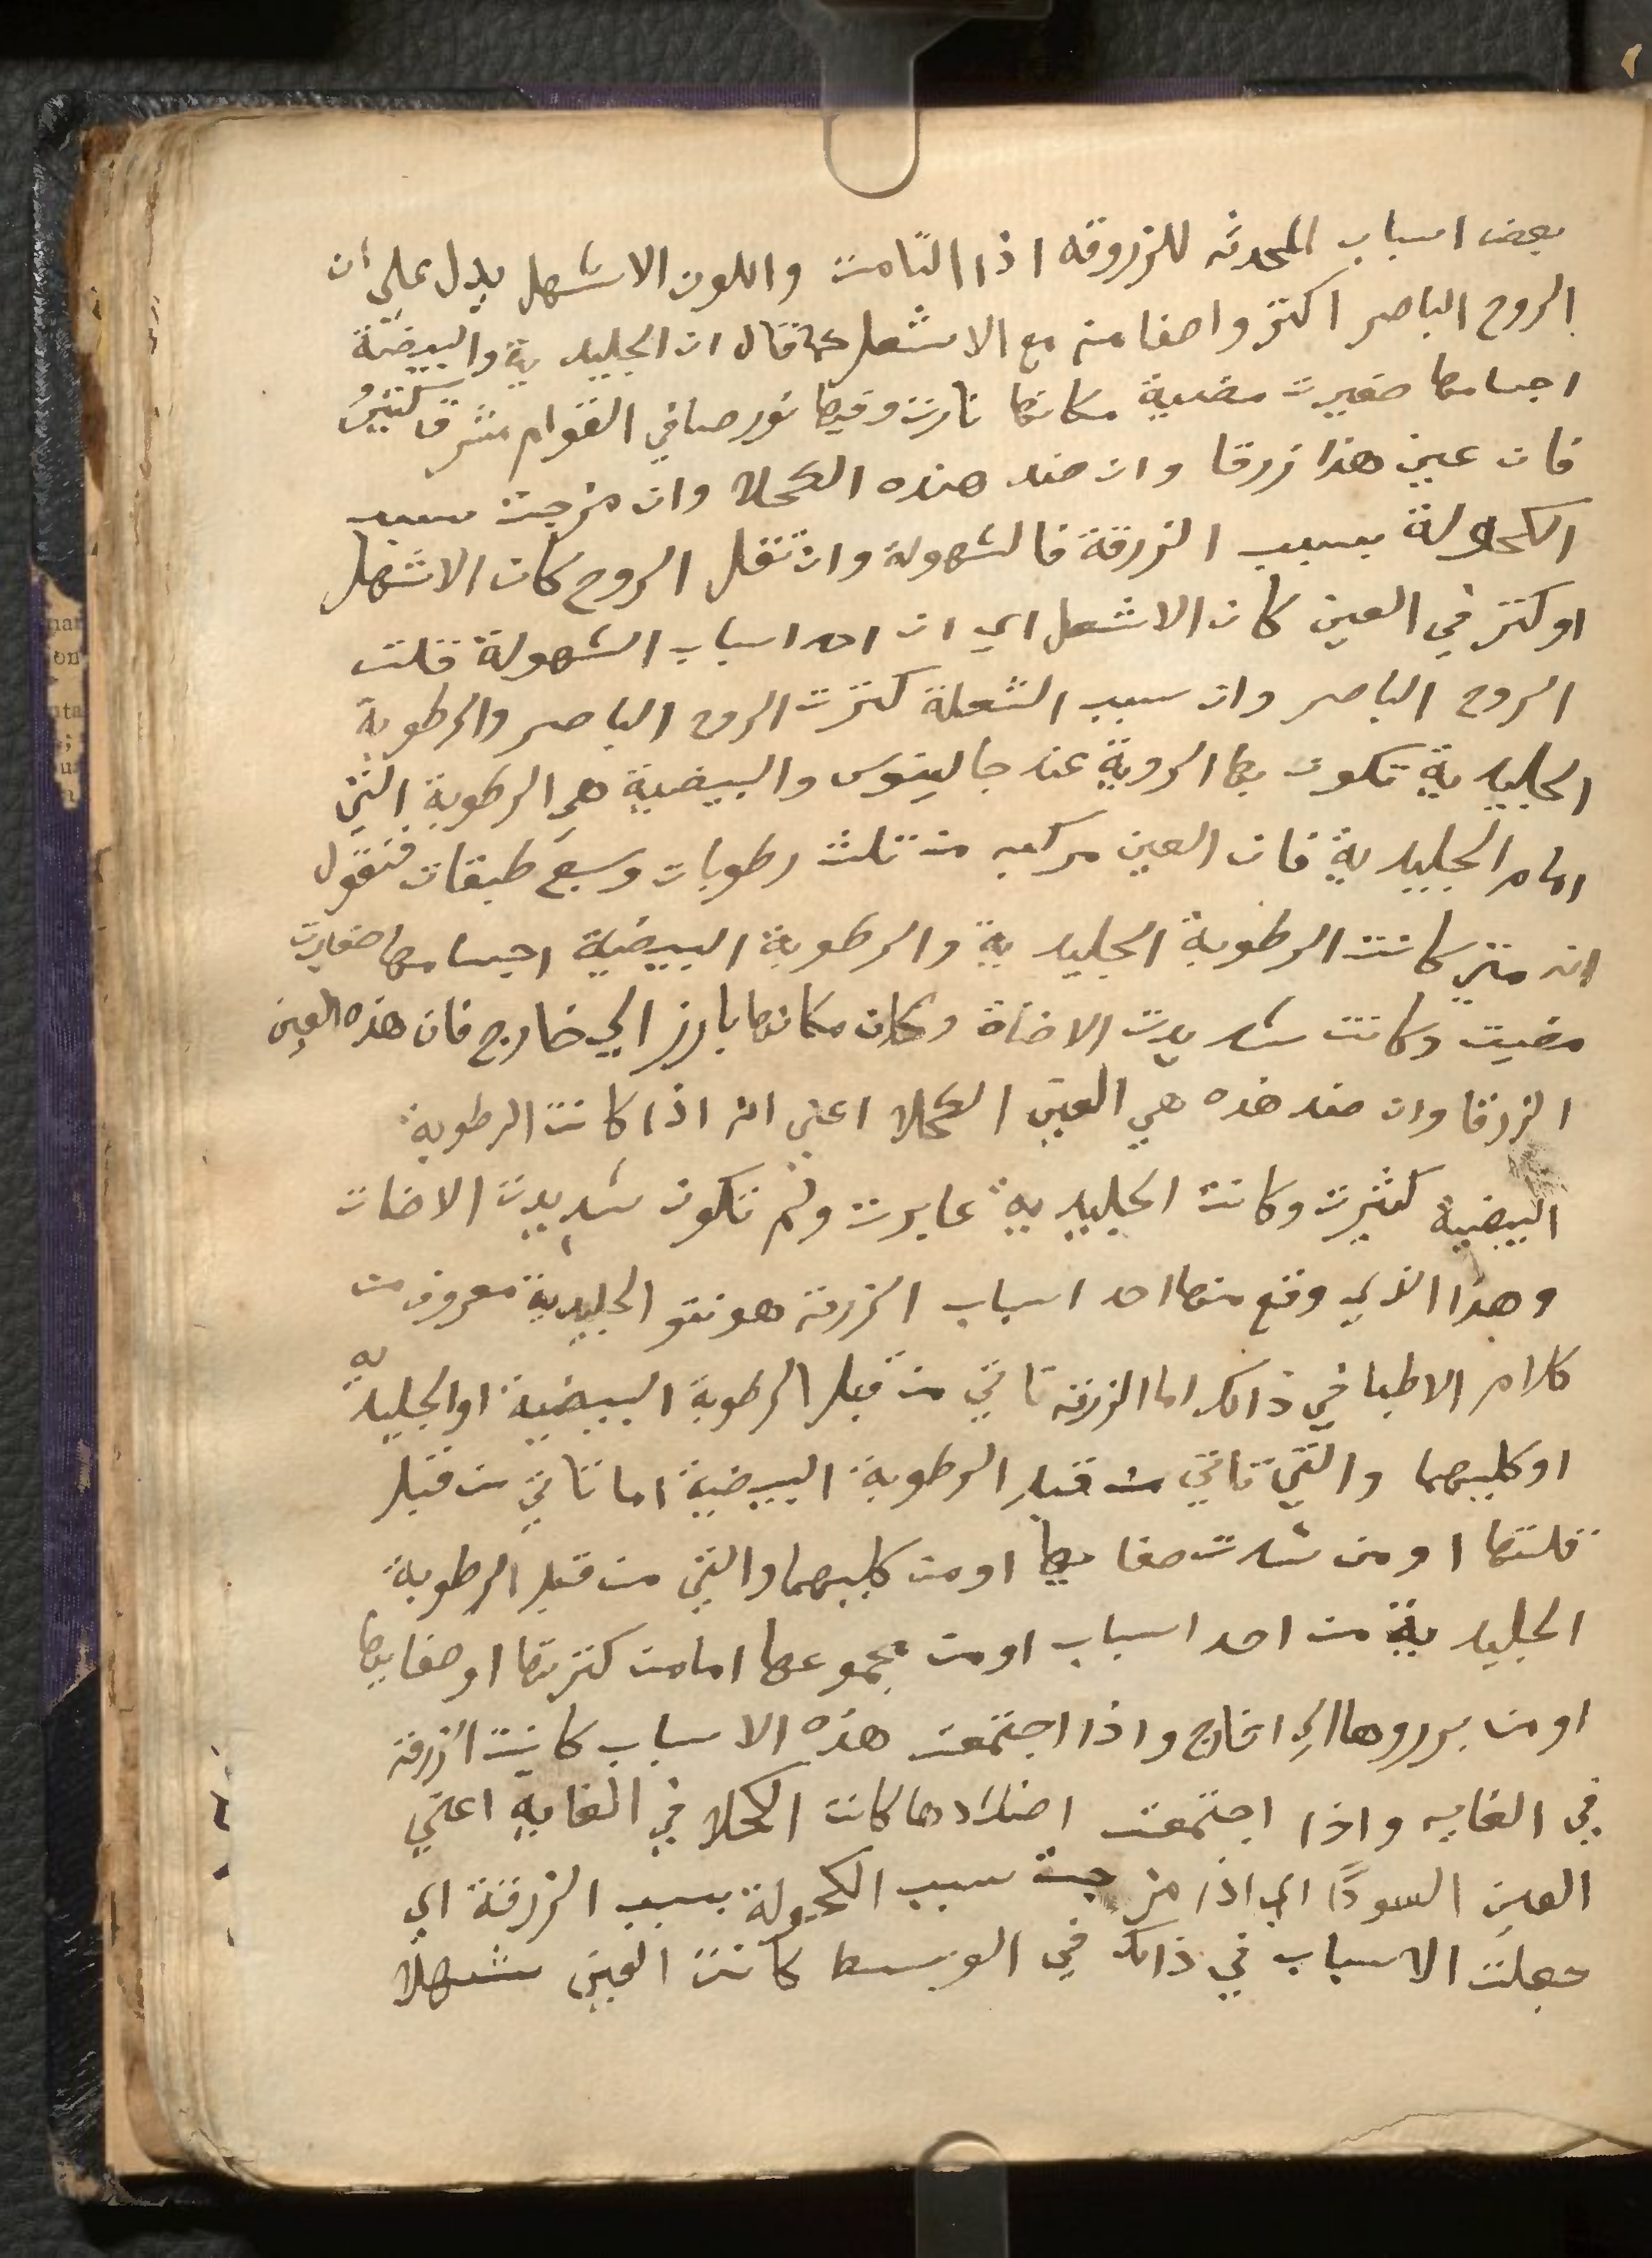 بعض اسباب المحدثه للزروقه اذا التامت واللون الاشهل يدل علي ان
الروح الباصر اكتر واصفا منه مع الاشعل قال ان الجليدية والبيضية
اجسامها صغيرت مضية مكانها نارت وفيها نور صافي القوام مشرق كتير
فان عين هذا زرقا وان ضد هذه الكحلا وان مزجت سبب
الكحولة بسبب الزرقة فالشهولة وان تقل الروح كان الاشهل
اوكتر في العين كان الاشعل اي ان احد اسباب الشهولة قلت
الروح الباصر وان سبب الشعلة كترت الروح الباصر والرطوبة
الجليدية تكون بها الروية عند جالينوس والبيضية هي الرطوبة التي
امام الجليدية فان العين مركبه من تلث رطوبات وسبع طبقات فنقول
انه متي كانت الرطوبة الجليدية والرطوبة البيضية اجسامها صغيرت
مضيت وكانت شديدت الاضاة وكان مكانها بارز الي خارج فان هذه العين
الزرقا وان ضد هذه هي العين الكحلا اعني انه اذا كانت الرطوبة
البيضية كثيرت وكانت الجليدية غايرت ولم تكون شديدت الاضات
وهذا الذي وقع منها احد اسباب الزرقة هو نتو الجليدية معروف من
كلام الاطبا في ذالك اما الزرقة تاتي من قبل الرطوبة البيضية او الجليدية
او كليهما والتي تاتي من قبل الرطوبة البيضية اما تاتي من قبل
قلتها او من شدت صفايها او من كليهما والتي من قبل الرطوبة
الجليدية من احد اسباب او من مجموعها اما من كترتها او صفايها
او من برروها الي اخارج واذا اجتمعت هذه الاسباب كانت الزرقة
في الغايه واذا اجتمعت اضدادها كانت الكحلا في الغاية اعني
العين السودا اي اذا مزجت سبب الكحولة بسبب الزرقة اي
جعلت الاسباب في ذالك في الوسط كانت العين شهلا